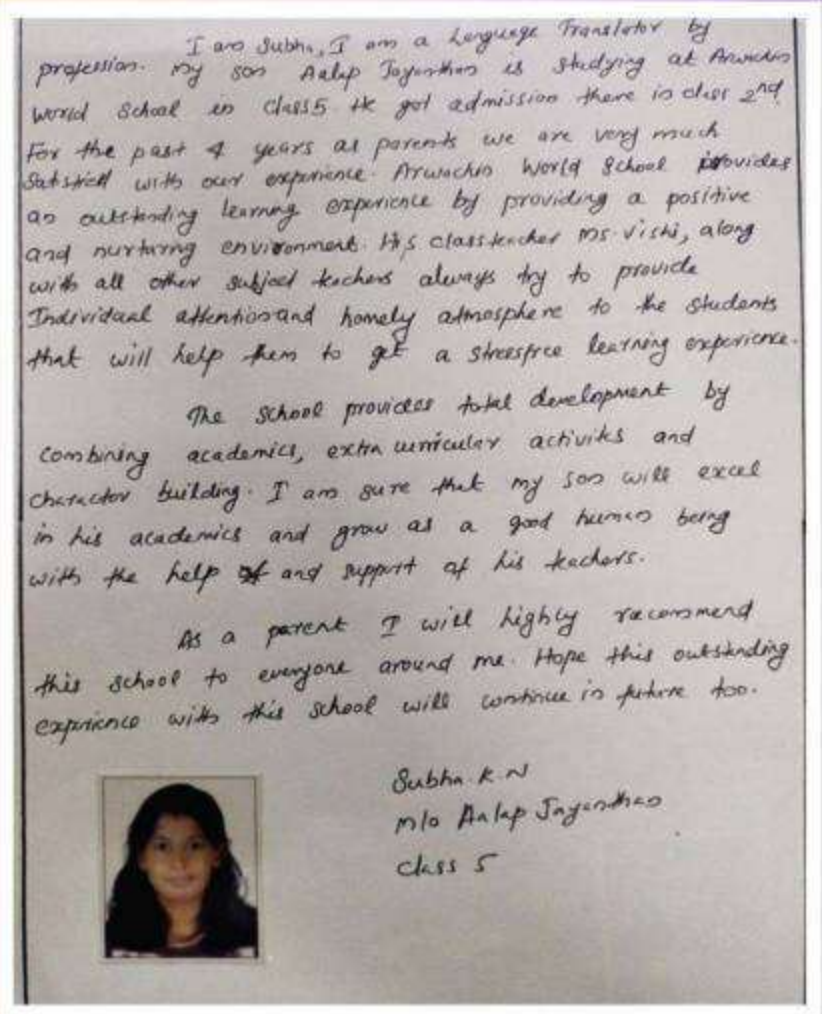 I am Subha, I am a Language Translator by
profession. My son Aalap Jayanthan is studying at Arwachin
World School in Class 5. He got admission there in class 2nd.
For the past 4 years as parents we are very much
Satisfied with our experience. Arwachin World School provides
an outstanding learning experience by providing a positive
and nurturing environment. His classteacher Ms. Vishi, along
with all other subject teachers always try to provide
Individual attention and homely atmosphere to the students
that will help them to get a stressfree learning experience.
The school provides total development by
combining academics, extra curricular activities and
charactor building. I am sure that my son will excel
in his academics and grow as a good human being
with the help and support of his teachers.
As a parent I will highly recommend
this school to everyone around me. Hope this outstanding
experience with this school will continue in future too.
Subha. K. N
M/o Aalap Jayanthan
Class 5